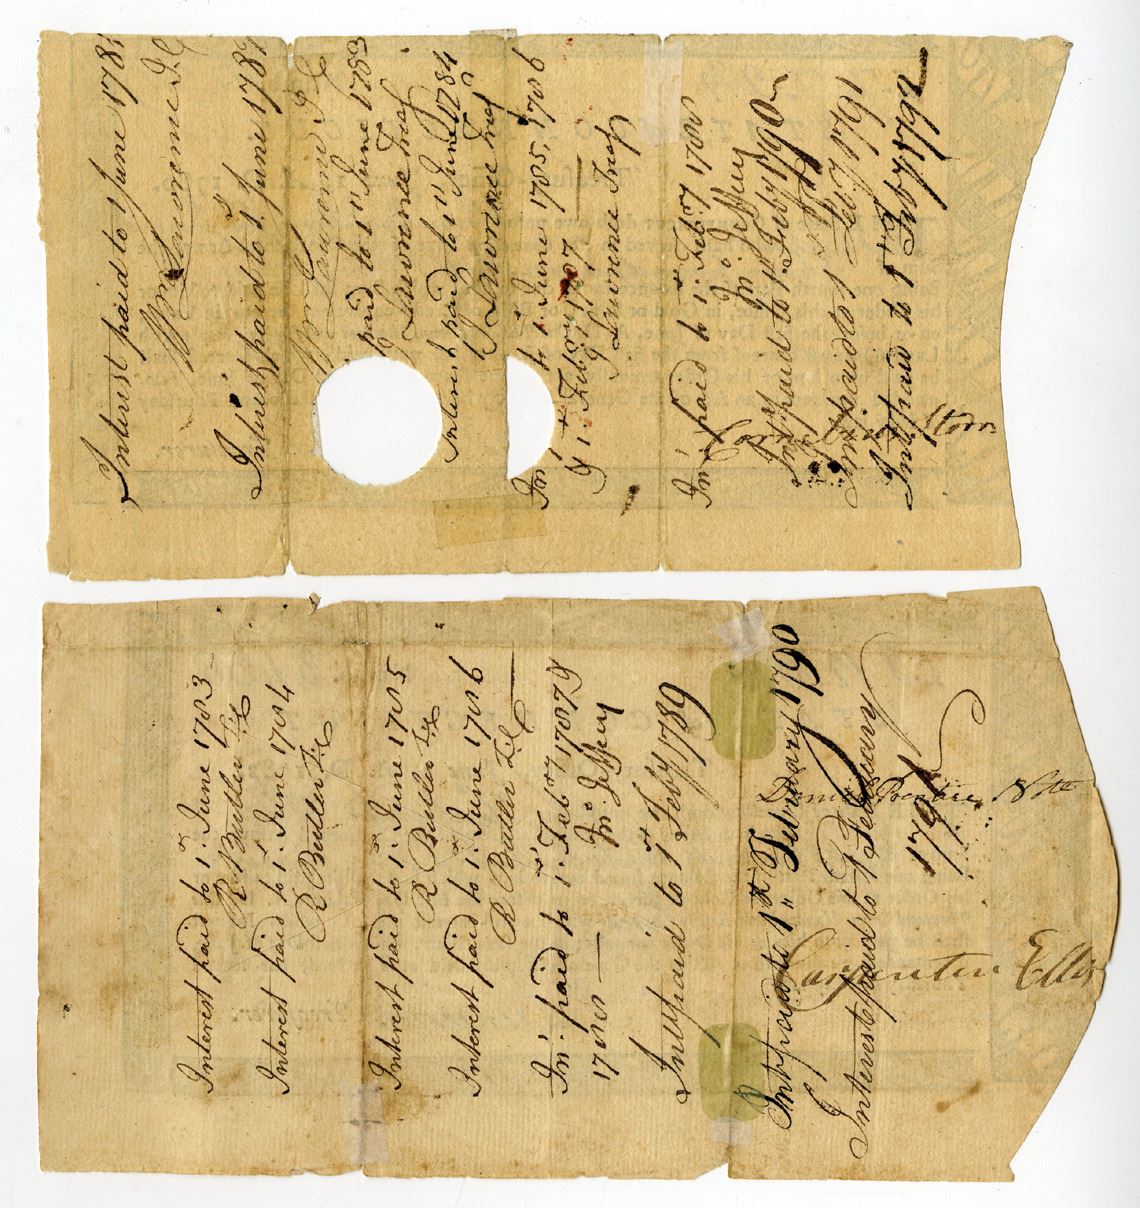 Interest paid to 1 June 1781
Wm Lawrence J C
Interest paid to 1st June 1782
Wm Lawrence J C
paid to 1st June 1783
J Lawrence Treas
Interest paid to 1st June 1784
J Lawrence Treas
Int to 1. June 1785, 1786
& 1st Feby 1787 —
J Lawrence Treas
Int paid to 1st Feby 1788
Jno Jeffery
Int paid to 1st Feby 1790
Int paid to 1st Feby 1791
Int paid to 1st Feby 1792
Cornelius Storrs
Interest paid to 1st June 1783
R Butler
Interest paid to 1st June 1784
R Butler
Interest paid to 1st June 1785
R Butler
Interest paid to 1st June 1786
R Butler
Int paid to 1st Feby 1787 &
1788 —
Jno Jeffery
Int paid to 1st Feby 1789
Int paid to 1st February 1790
Interest paid to 1st February
1791
Note
Carpenter Ellis